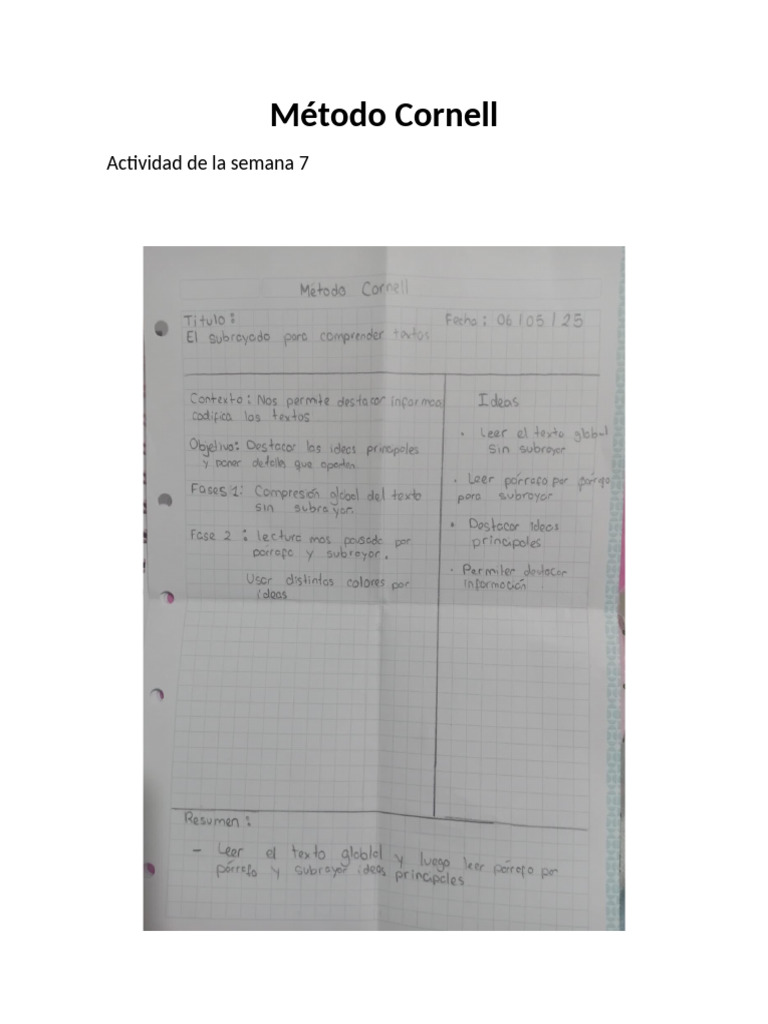 Método Cornell
Actividad de la semana 7
Método Cornell
Titulo:
Fecha: 06/05/25
El subrayado para comprender textos
Contexto: Nos permite destacar informaci
codifica los textos
Objetivo: Destacar las ideas principales
y poner detalles que aporten.
Fases 1: Compresión global del texto
sin subrayar.
Fase 2: lectura mas pausada por
parrafo y subrayar.
Usar distintos colores por
ideas
Ideas
• Leer el texto global
Sin subrayar
• Leer párrafo por párrafo
para subrayar
• Destacar ideas
principales
• Permiter destacar
información.
Resumen:
- Leer el texto globlal y luego leer párrafo por
párrafo y subrayar ideas principales